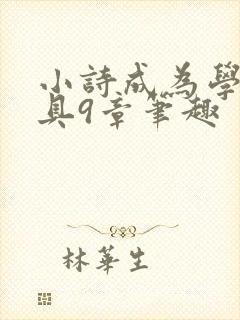 小詩成為學
具9章筆趣
林華生